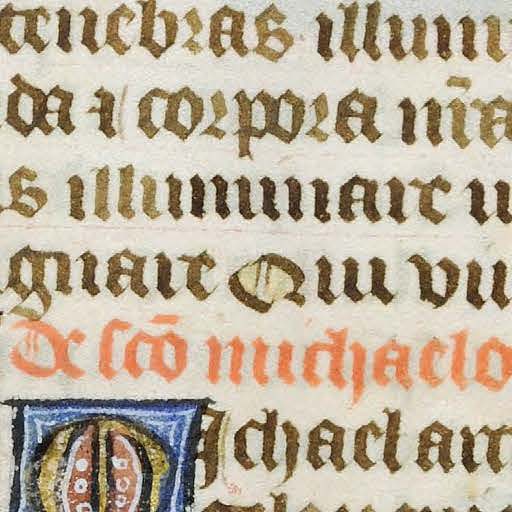 tenebras illum
da ⁊ corpora n̄ra
s illuminare
gnare Qui viu
De sc̄o michaelo
Michael